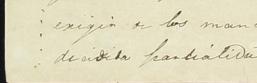 exigir de los man
decidida parcialida